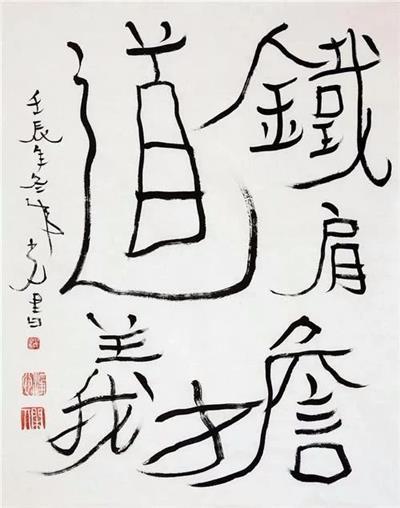 鐵肩擔
道義
壬辰年冬 書